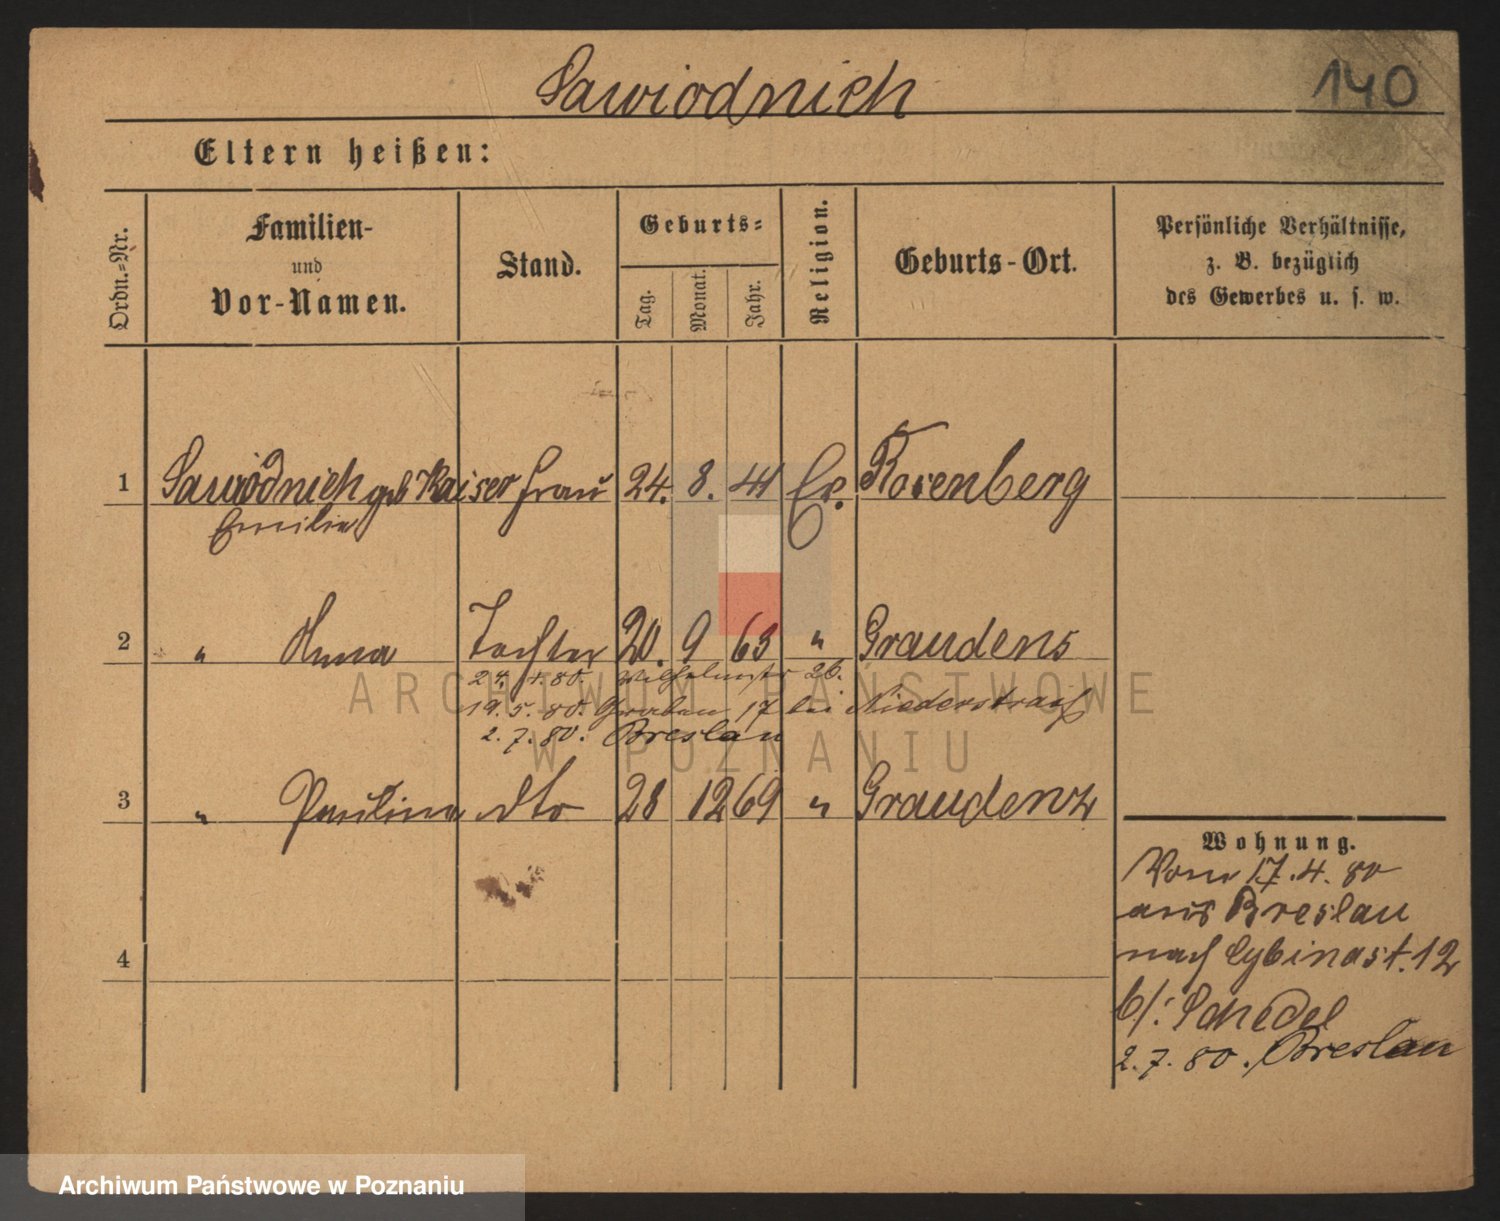 Sawiodnich
140
Eltern heißen:
Ordn.-Nr.
Familien-
und
Vor-Namen.
Stand.
Geburts-
Tag.
Monat.
Jahr.
Religion.
Geburts-Ort.
Persönliche Verhältnisse,
z. B. bezüglich
des Gewerbes u. s. w.
1 Sawiodnich geb Kaiser Frau 24. 8. 41 Ev. Rosenberg
Emilie
2 " Anna Tochter 20. 9 63 " Graudens
24. 4. 80. Wilhelmstr 26.
19. 5. 80. Graben 17 bei
2. 7. 80. Breslau
3 " Paulina dto 28 12 69 " Graudenz
4
Wohnung.
Vom 17. 4. 80
aus Breslau
nach Cybinast. 12
b/: Schedel
2. 7. 80. Breslau
ARCHIWUM PAŃSTWOWE
W POZNANIU
Archiwum Państwowe w Poznaniu